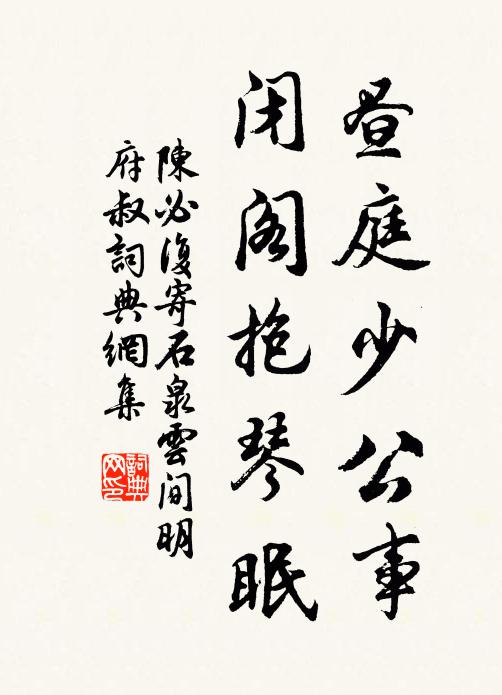 昼庭少公事
闭阁抱琴眠
陳必復寄石泉雲间明
府叔詞典網集
詞典网印